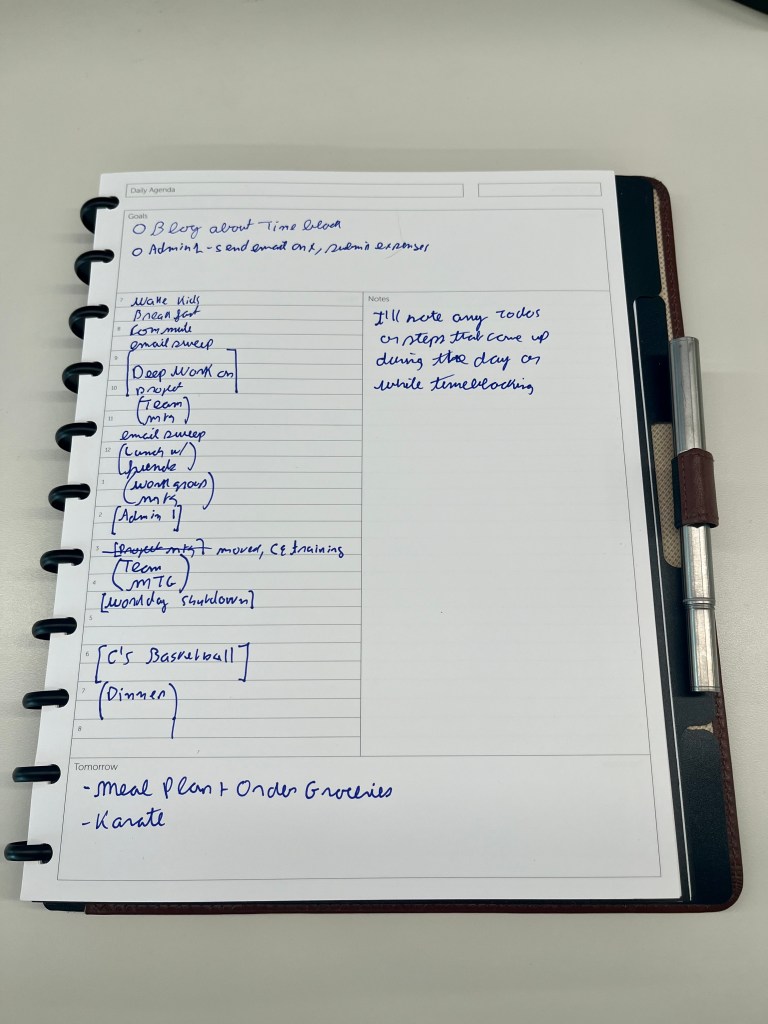 Daily Agenda
Goals
Blog about Time block
Admin 1 - send email on x, submit expenses
7 Wake Kids
Breakfast
8 Commute
email sweep
9
Deep Work on
10 project
(Team
11 mtg)
email sweep
12 (Lunch w/
friends)
1 (work group
mtg)
2 [Admin 1]
3 [Project mtg] moved, CE training
(Team
4 MTG)
[workday shutdown]
5
6 [C's Basketball]
7 (Dinner)
8
Notes
I'll note any Todos
or steps that come up
during the day or
while timeblocking
Tomorrow
- Meal Plan + Order Groceries
- Karate